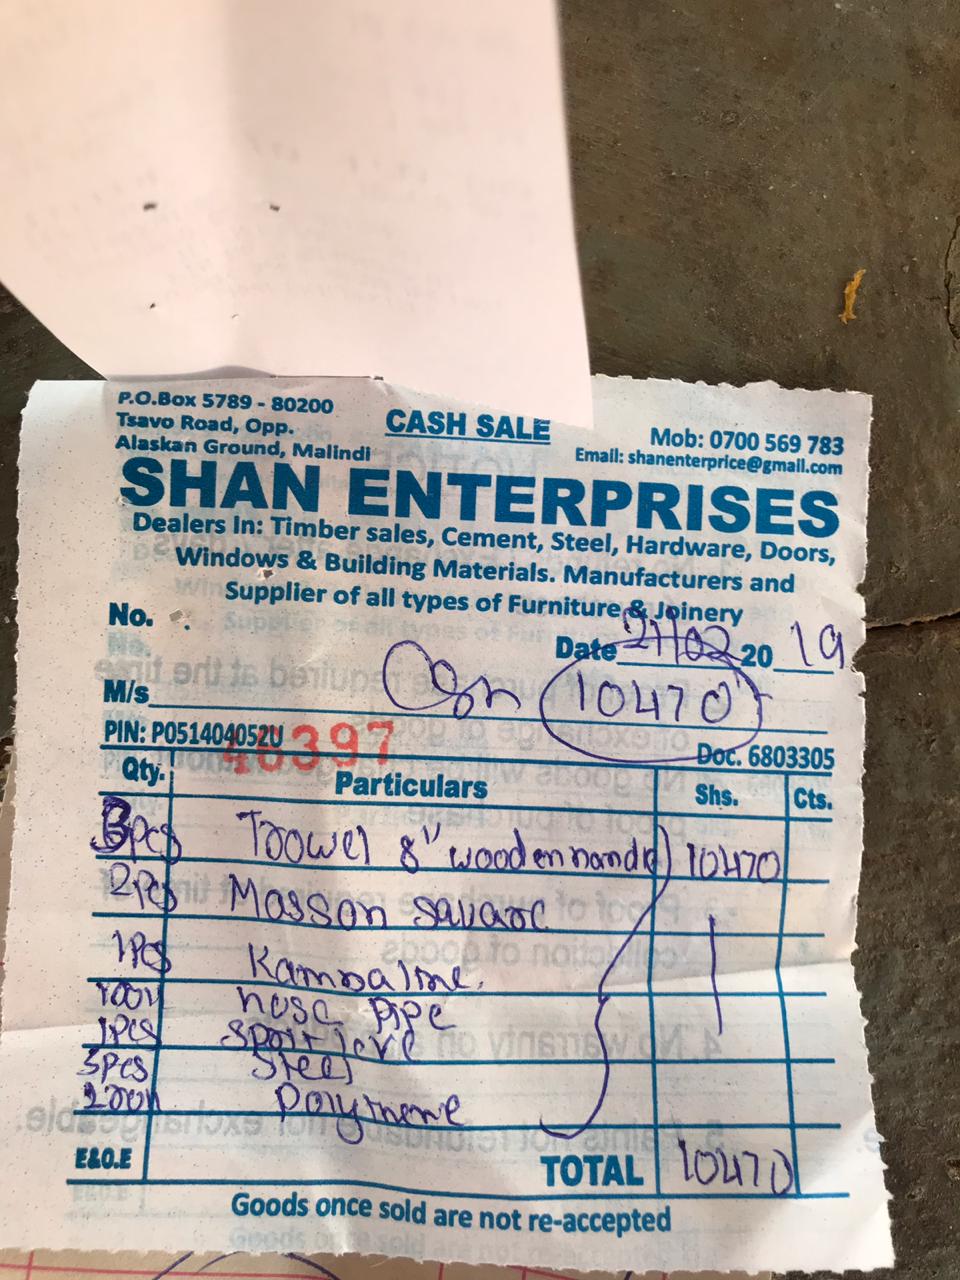 P.O.Box 5789 - 80200
Tsavo Road, Opp.
Alaskan Ground, Malindi
CASH SALE
Mob: 0700 569 783
Email: shanenterprice@gmail.com
SHAN ENTERPRISES
Dealers In: Timber sales, Cement, Steel, Hardware, Doors,
Windows & Building Materials. Manufacturers and
Supplier of all types of Furniture & Joinery
No.
Date 21/02 20 19
M/s 10470
PIN: P051404052U 40397 Doc. 6803305
Qty. Particulars Shs. Cts.
3pcs Toowel 8" wooden handle 10470
2Pcs Masson square
1Pcs
hose pipe
1Pcs
3pcs Steel
Polythene
E&O.E TOTAL 10470
Goods once sold are not re-accepted